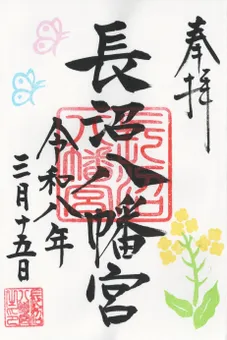 奉拝
長沼八幡宮
令和八年
三月十五日